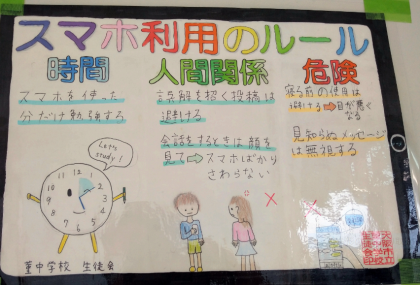 スマホ利用のルール
時間
スマホを使った
分だけ勉強する
Let's
study!
12
1
2
3
4
5
6
7
8
9
10
11
菫中学校 生徒会
人間関係
誤解を招く投稿は
避ける
会話をするときは顔を
見て⇨スマホばかり
さわらない
危険
寝る前の使用は
避ける⇨目が悪く
なる
見知らぬメッセージ
は無視する
大阪市立